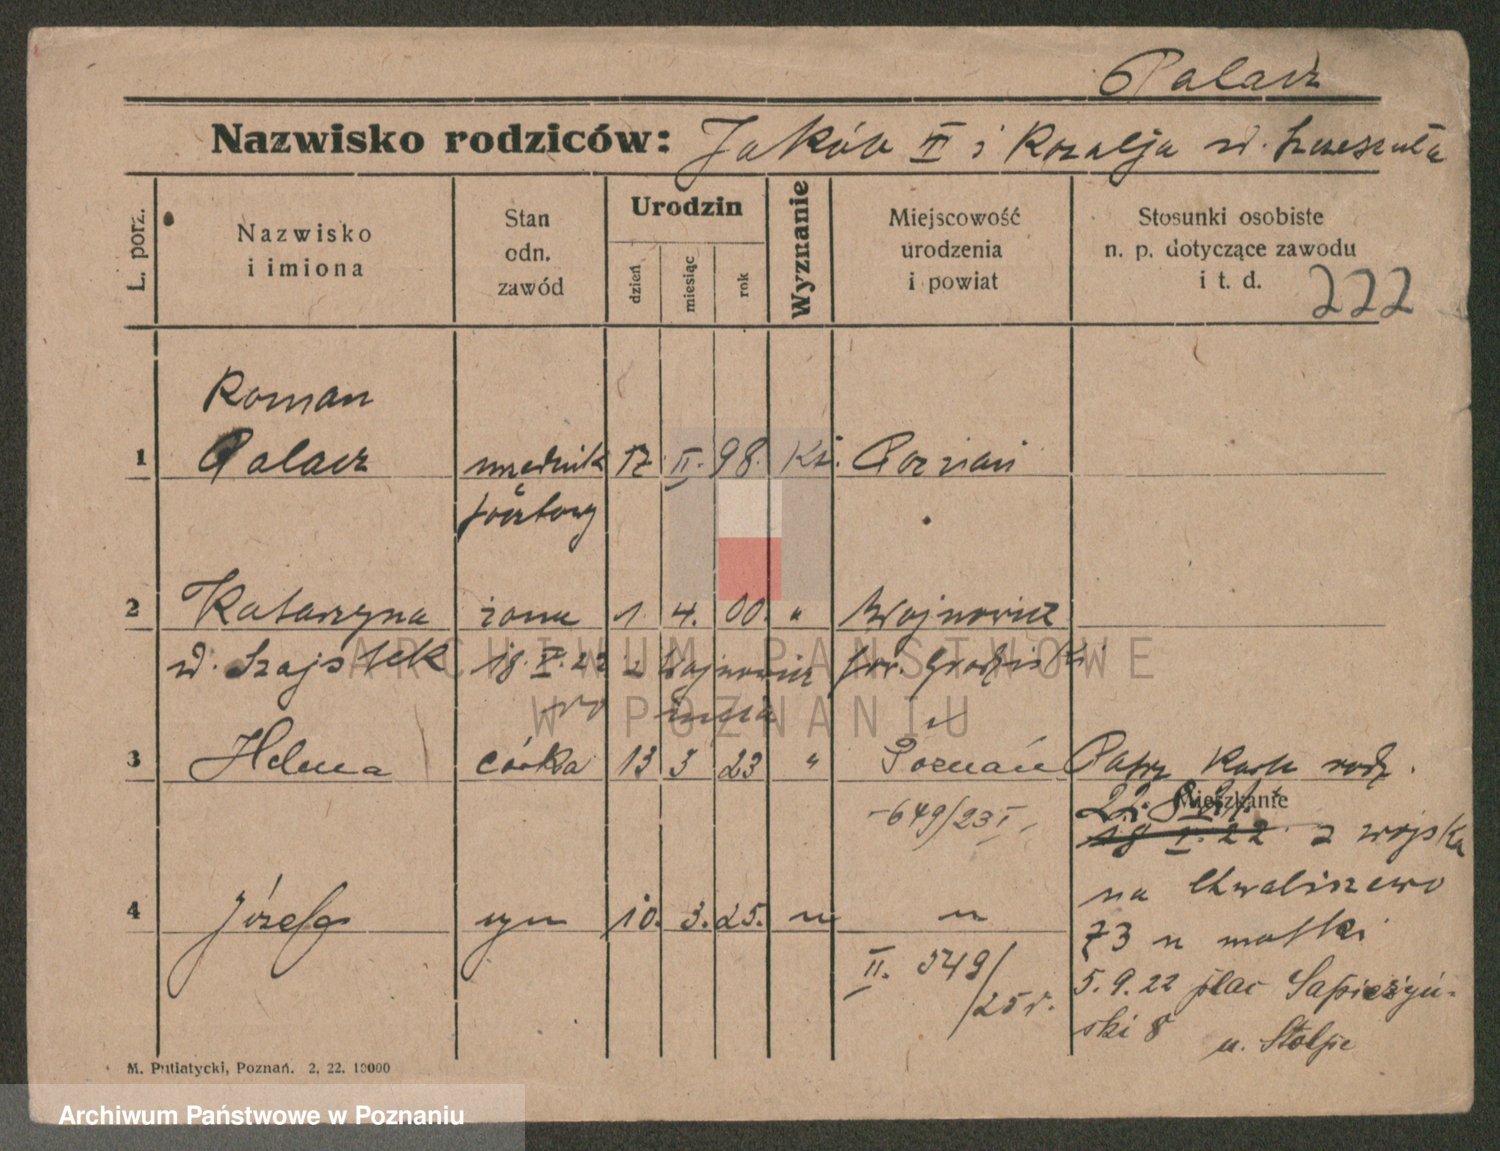 Palacz
Nazwisko rodziców: Jakób II i Rozalja zd. Szczeszuła
L. porz.
Nazwisko
i imiona
Stan
odn.
zawód
Urodzin
dzień
miesiąc
rok
Wyznanie
Miejscowość
urodzenia
i powiat
Stosunki osobiste
n. p. dotyczące zawodu
i t. d.
222
Roman
1 Palacz urzednik 17. II. 98. Kt. Poznań
pocztowy
2 Katarzyna żona 1 4. 00. " Wojnowice
zd. Szajstek 18. V. 22 z Wojnowic pow. Grodziski
3 Helena córka 13 3 23 " Poznań Patrz Karta rodz.
649/23 I
Mieszkanie
22. 8. 21.
18 V. 22 z wojska
na Chwaliszewo
73 u matki
4 Józef syn 10. 3. 25. " "
II. 549/
25 r.
5. 9. 22 plac Sapieżyń-
ski 8 u. Stolpe
M. Putiatycki, Poznań. 2, 22. 10000
ARCHIWUM PAŃSTWOWE
W POZNANIU
Archiwum Państwowe w Poznaniu